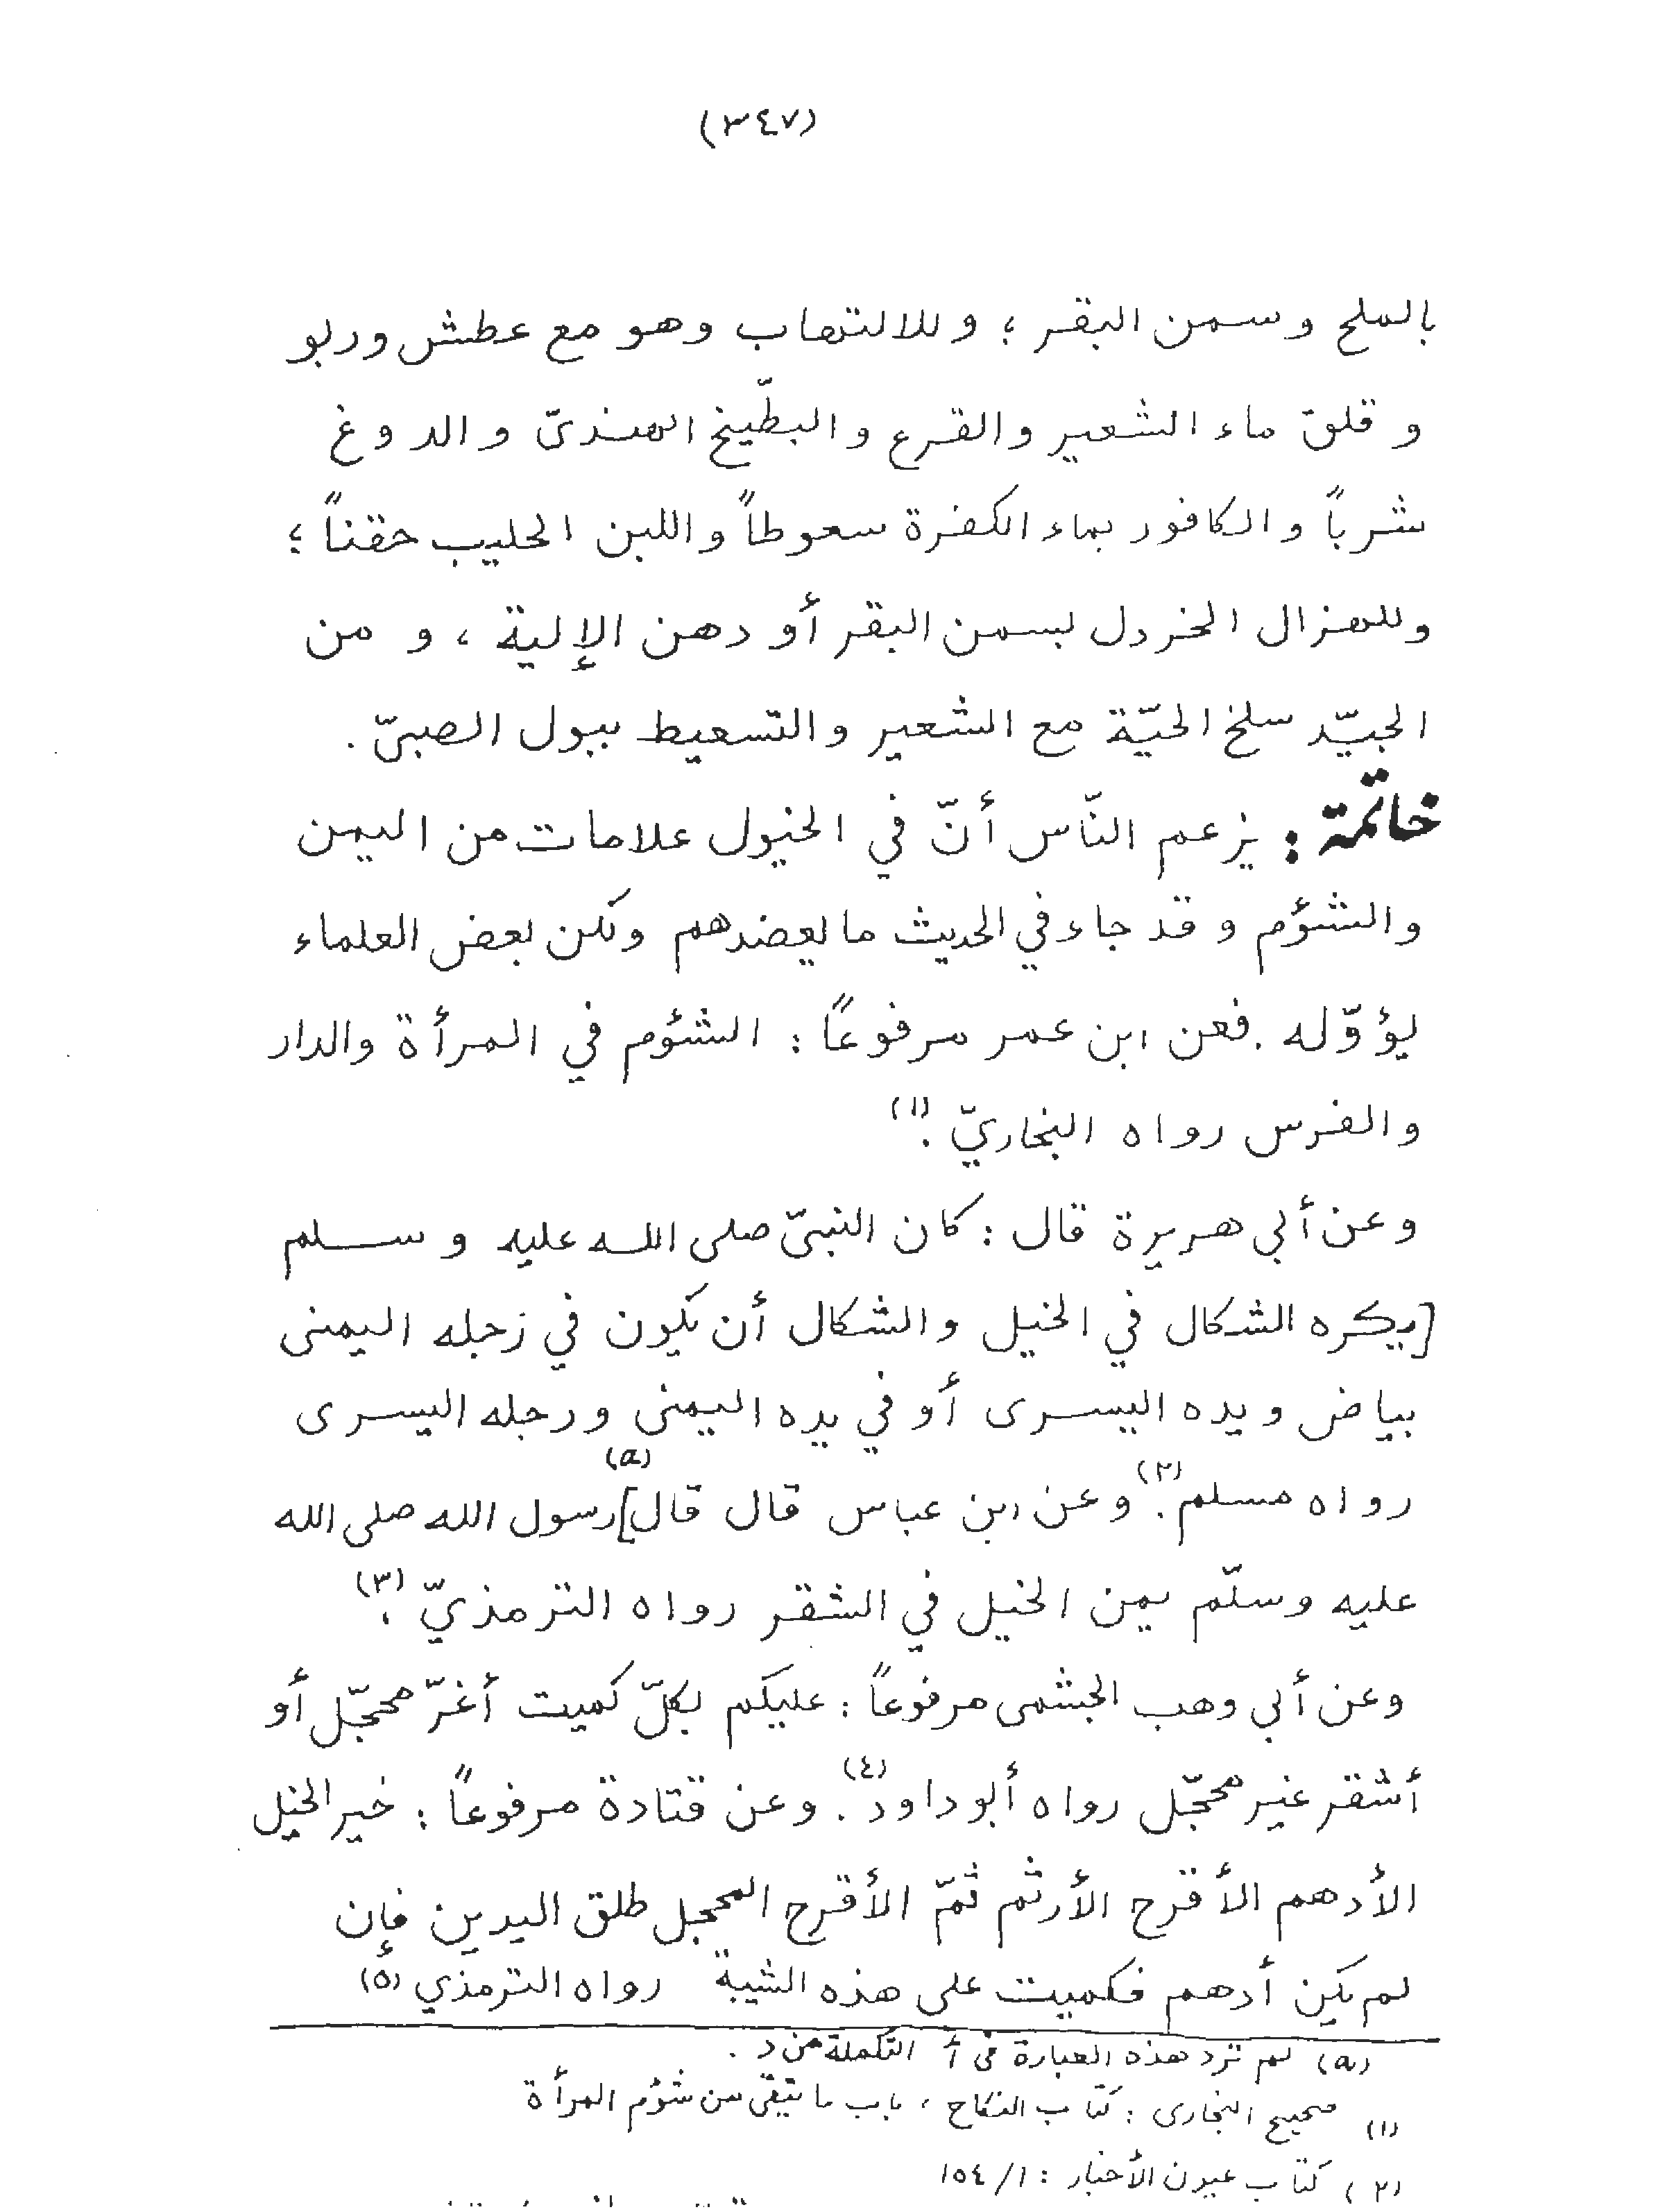 (٣٤٧)
بالملح وسمن البقر ؛ وللالتهاب وهو مع عطش وربو
و قلق ماء الشعير والقرع والبطّيخ الهندىّ والدوغ
شرباً والكافور بماء الكفرة سعوطاً واللبن الحليب حقناً ؛
وللهزال الخردل بسمن البقر أو دهن الإلية ، و من
الجيّد سلخ الحيّة مع الشعير والتسعيط ببول الصبىّ .
خاتمة : يزعم النّاس أنّ في الخيول علامات من اليمن
والشؤم وقد جاء في الحديث ما يعضدهم ولكن بعض العلماء
يؤوّله . فعن ابن عمر مرفوعاً : الشؤم في المرأة والدار
والفرس رواه البخاريّ .(١)
وعن أبي هريرة قال : كان النبىّ صلى الله عليه و سلم
[يكره الشكال في الخيل والشكال أن يكون في رجله اليمنى
بياض ويده اليسرى أو في يده اليمنى ورجله اليسرى
رواه مسلم .(٢) وعن ابن عباس قال قال](a) رسول الله صلى الله
عليه وسلّم يمن الخيل في الشقر رواه الترمذيّ ،(٣)
وعن أبي وهب الجشمى مرفوعاً : عليكم بكلّ كميت أغرّ محجّل أو
أشقر غير محجّل رواه أبو داود(٤) . وعن قتادة مرفوعاً : خير الخيل
الأدهم الأقرح الأرثم ثمّ الأقرح المحجل طلق اليدين فإن
لم يكن أدهم فكميت على هذه الشيبة رواه الترمذي (٥)
(a) لم ترد هذه العبارة في أ التكملة من د .
(١) صحيح البخارى : كتاب النكاح ، باب ما يتقى من شؤم المرأة
(٢) كتاب عيون الأخبار : ١/ ١٥٤